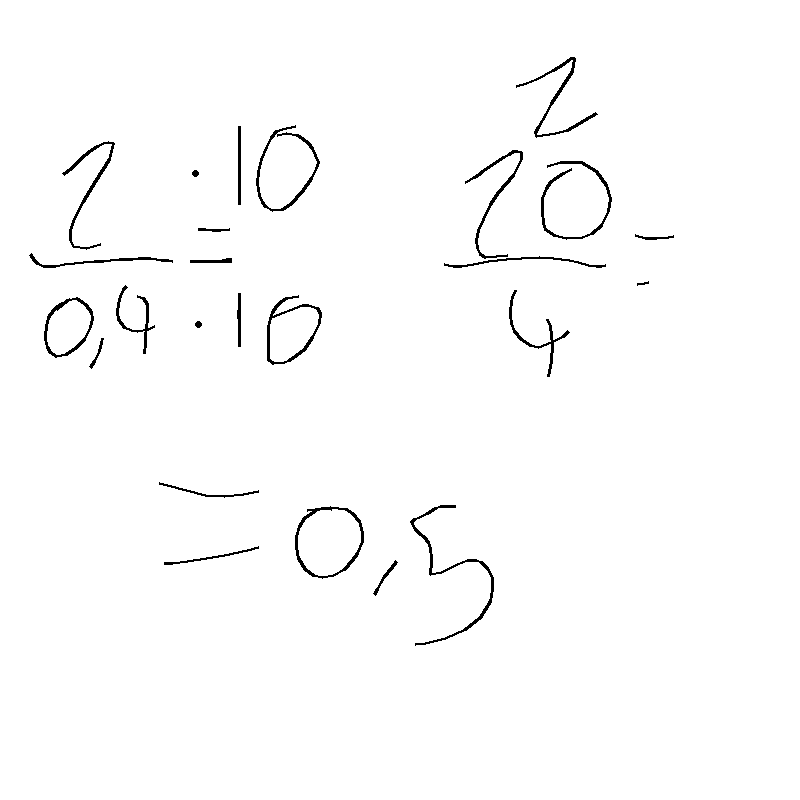 2 · 10 / 0,4 · 10 = 2 20 / 4 =
= 0,5